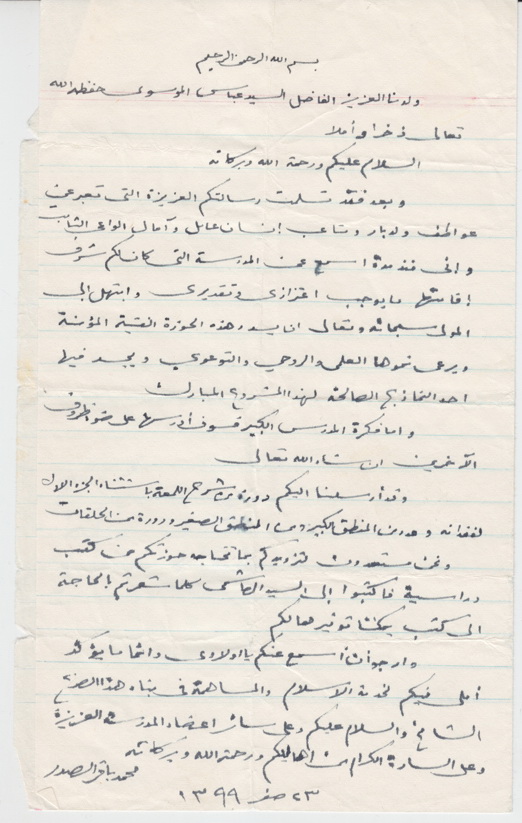 بسم الله الرحمن الرحيم
ولدنا العزيز الفاضل السيد عباس الموسوي حفظه الله
تعالى ذخرا وأملا
السلام عليكم ورحمة الله وبركاته
وبعد فقد تسلمت رسالتكم العزيزة التي تعبر عن
عواطف ولد بار ومتاعب إنسان عامل وآمال الواعي الشاب
وإني منذ مدة اسمع عن المدرسة التي كان لكم شرف
إقامتها ما يوجب اعتزازي وتقديري وابتهل إلى
المولى سبحانه وتعالى ان يسدد هذه الحوزة الفتية المؤمنة
ويرعى نموها العلمي والروحي والتوعوي ويجسد فيها
احد النماذج الصالحة لهذا المشروع المبارك
واما فكرة المدرس الكبير فسوف أدرسها على ضوء ظروف
الآخرين ان شاء الله تعالى
وقد أرسلنا اليكم دورة من شرح اللمعة باستثناء الجزء الاول
لفقدانه و من المنطق الكبير ومن المنطق الصغير ودورة من الحلقات
ونحن مستعدون لتزويدكم بما تحتاجه حوزتكم من كتب
دراسية فاكتبوا إلى السيد الهاشمي كلما شعرتم بالحاجة
الى كتب يمكننا توفيرها لكم
وارجو أن أسمع عنكم يا اولادي دائما ما يؤكد
أملي فيكم لخدمة الاسلام والمساهمة في بناء هذا الصرح
الشامخ والسلام عليكم وعلى سائر اعضاء المدرسة العزيزة
وعلى السادة الكرام من اهاليكم ورحمة الله وبركاته
محمد باقر الصدر
٢٣ صفر ١٣٩٩